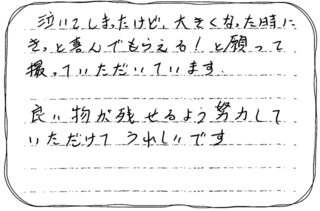 泣いてしまったけど、大きくなった時に
きっと喜んでもらえる!と願って
撮っていただいています.
良い物が残せるよう努力して
いただけて うれしいです